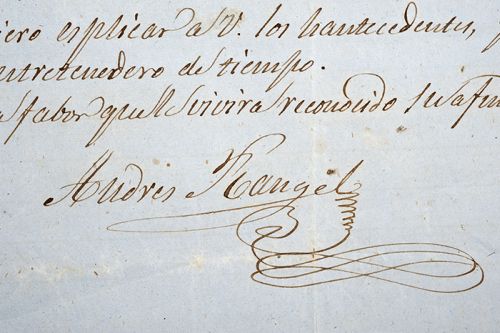 iero esplicar a V. los hantecedentes,
ntretenedero de tiempo.
fabor que le vivira reconocido su afm
Andres Rangel